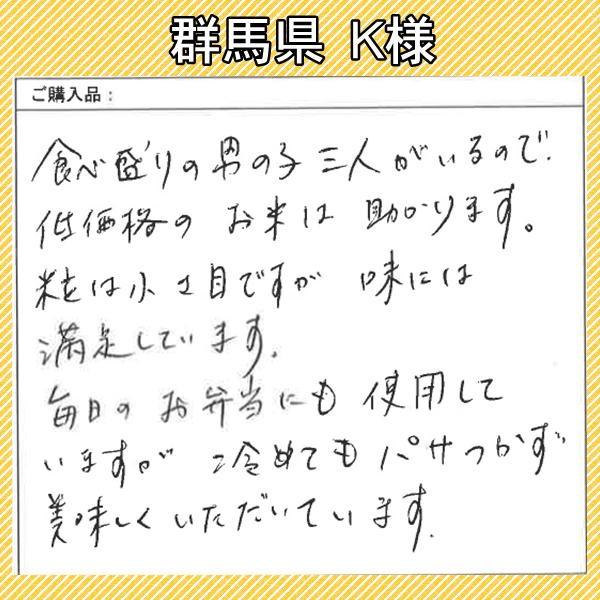 群馬県 K様
ご購入品：
食べ盛りの男の子三人がいるので、
低価格の お米は 助かります。
粒は小さ目ですが 味には
満足しています。
毎日の お弁当にも 使用して
いますが 冷めてもパサつかず
美味しくいただいています。